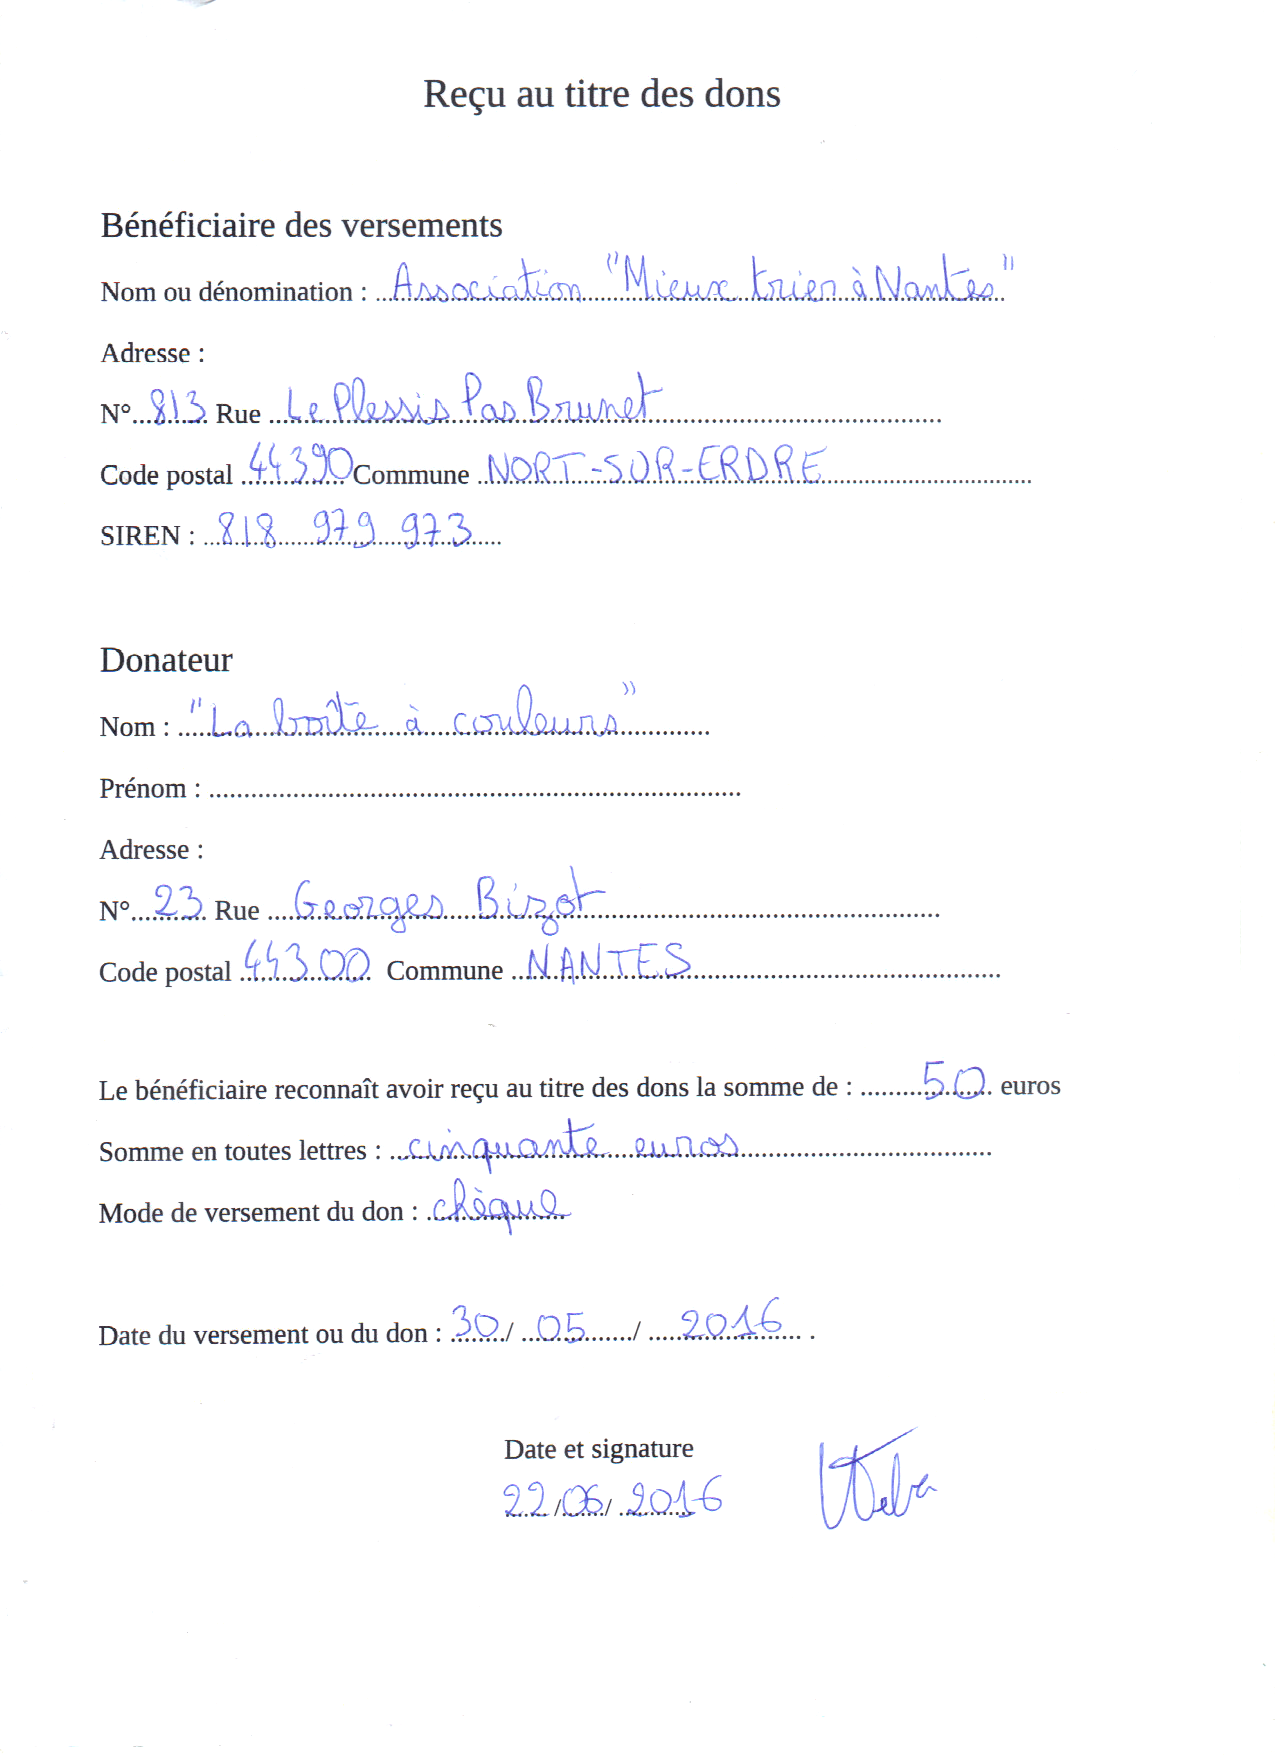 Reçu au titre des dons
Bénéficiaire des versements
Nom ou dénomination : Association "Mieux trier à Nantes"
Adresse :
N° 813 Rue Le Plessis Pas Brunet
Code postal 44390 Commune NORT-SUR-ERDRE
SIREN : 818 979 973
Donateur
Nom : "La boîte à couleurs"
Prénom :
Adresse :
N° 23 Rue Georges Bizot
Code postal 44300 Commune NANTES
Le bénéficiaire reconnaît avoir reçu au titre des dons la somme de : 50 euros
Somme en toutes lettres : cinquante euros
Mode de versement du don : chèque
Date du versement ou du don : 30 / 05 / 2016 .
Date et signature
22 / 06 / 2016